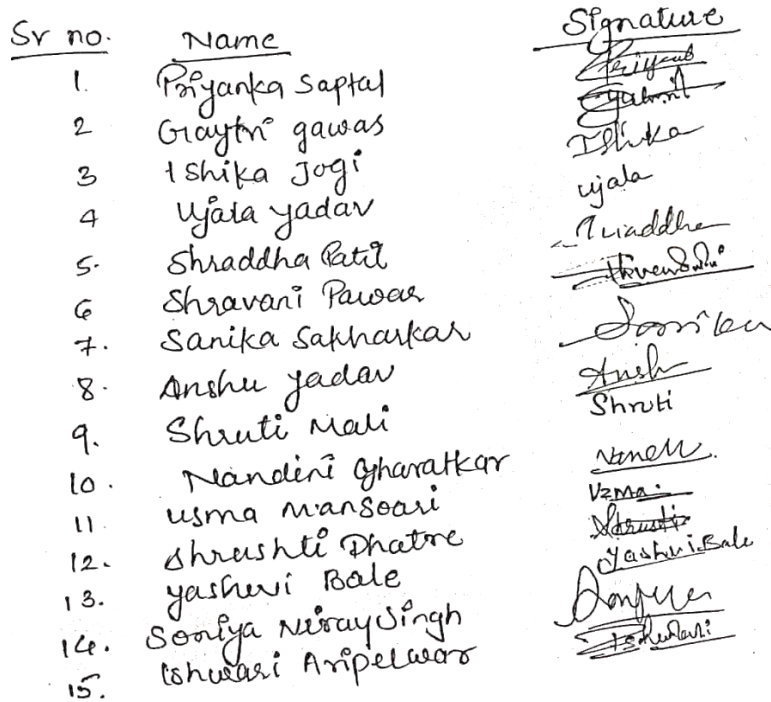 Sr no. Name Signature
1. Priyanka Saptal Priyanka
2 Graytri gawas Gyatri
3 Ishika Jogi Ishika
4 Ujala yadav ujala
5. Shraddha Patil
6 Shravani Pawar
7. Sanika Sakharkar Sanika
8. Anshu yadav Anshu
9. Shruti Mali Shruti
10. Nandini Gharatkar
11 Usma Mansoori Uzma
12. Shrushti Dhatre Shrusti
13. yashwi Bale Yashwi.Bale
14. Soniya Niraysingh
15. Ishwari Aripelwar Ishwari